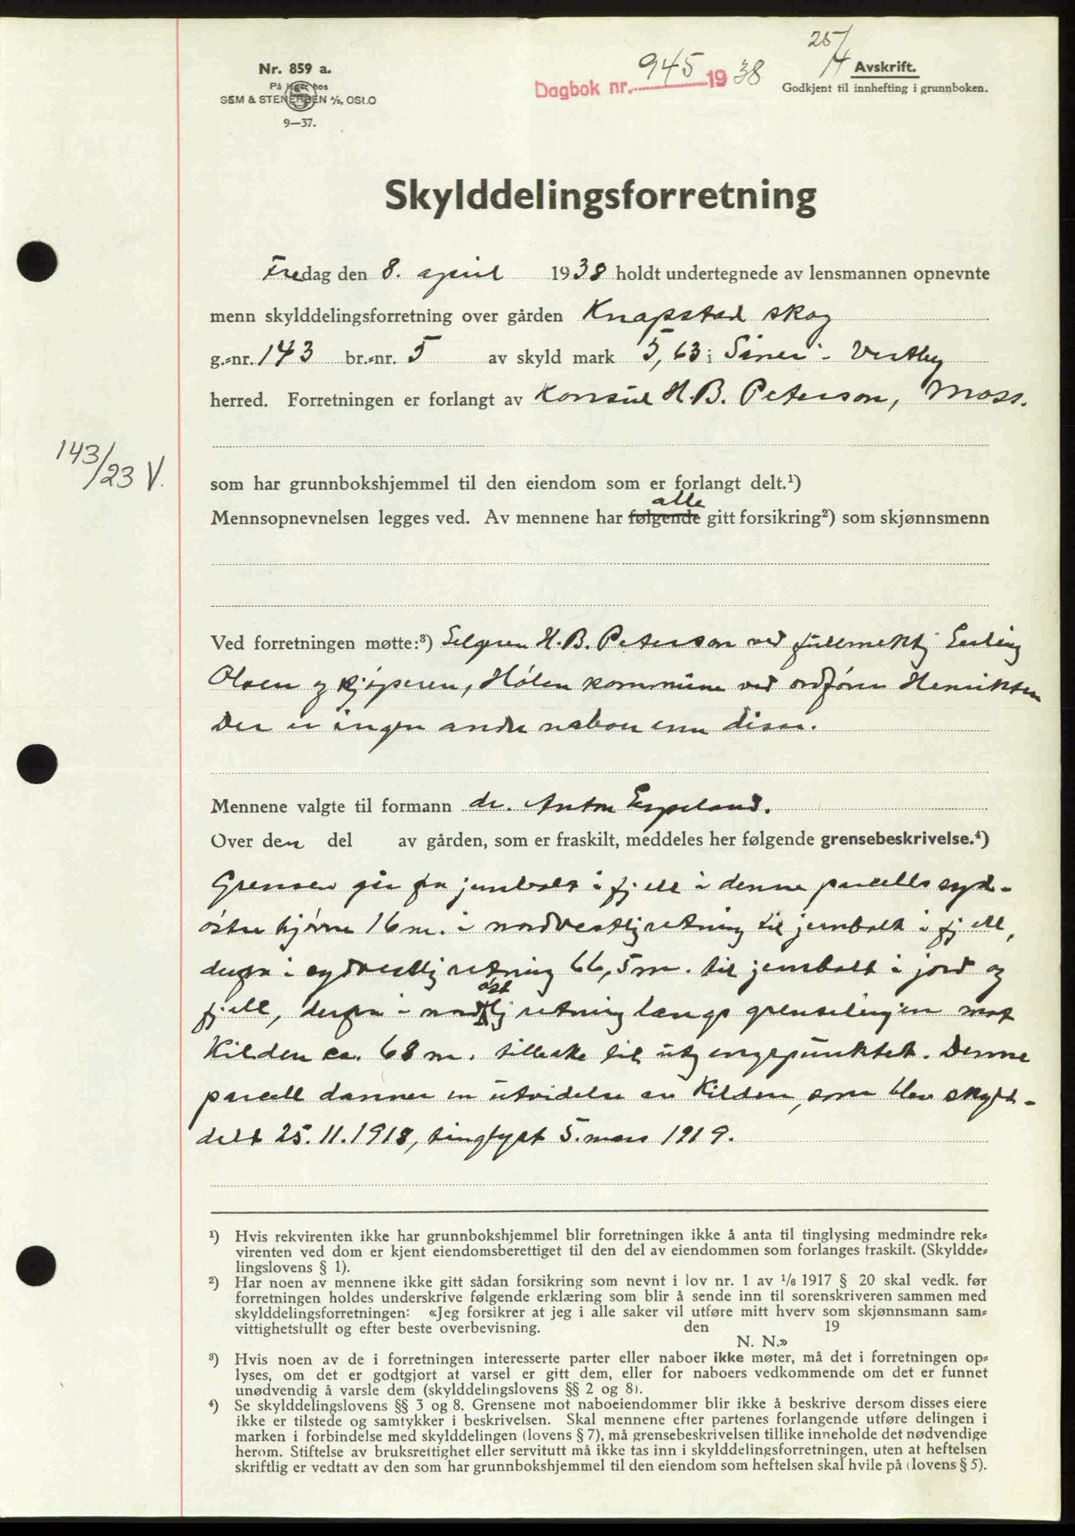 Nr. 859 a.
På lager hos
SEM & STENERSEN A/S, OSLO
9—37.
Dagbok nr. 945 1938
25/4
Avskrift.
Godkjent til innhefting i grunnboken.
Skylddelingsforretning
Fredag den 8. april 1938 holdt undertegnede av lensmannen opnevnte
menn skylddelingsforretning over gården Knapstad skog
g.-nr. 143 br.-nr. 5 av skyld mark 5,63 i Såner i Vestby
herred. Forretningen er forlangt av Konsul H.B. Peterson, Moss.
143/23 V.
som har grunnbokshjemmel til den eiendom som er forlangt delt.¹)
alle
Mennsopnevnelsen legges ved. Av mennene har følgende gitt forsikring²) som skjønnsmenn
Ved forretningen møtte:³) Selgeren H.B. Peterson ved fullmektig Erling
Olsen og kjøperen, Hølen kommune ved ordfører Henriksen
Der er ingen andre naboer enn disse.
Mennene valgte til formann dr. Anton Espeland.
Over den del av gården, som er fraskilt, meddeles her følgende grensebeskrivelse.⁴)
Grensen går fra jernbolt i fjell i denne parcells syd-
østre hjørne 16 m. i nordvestlig retning til jernbolt i fjell,
derfra i sydvestlig retning 66,5 m. til jernbolt i jord og
øst
fjell, derfra i nordlig retning langs grenselinjen mot
Kilden ca. 68 m. tilbake til utgangspunktet. Denne
parcell danner en utvidelse av Kilden, som blev skyld-
delt 25.11.1918, tinglyst 5. mars 1919.
¹) Hvis rekvirenten ikke har grunnbokshjemmel blir forretningen ikke å anta til tinglysing medmindre rek-
virenten ved dom er kjent eiendomsberettiget til den del av eiendommen som forlanges fraskilt. (Skyldde-
lingslovens § 1).
²) Har noen av mennene ikke gitt sådan forsikring som nevnt i lov nr. 1 av 1/6 1917 § 20 skal vedk. før
forretningen holdes underskrive følgende erklæring som blir å sende inn til sorenskriveren sammen med
skylddelingsforretningen: «Jeg forsikrer at jeg i alle saker vil utføre mitt hverv som skjønnsmann sam-
vittighetsfullt og efter beste overbevisning. den 19
N. N.»
³) Hvis noen av de i forretningen interesserte parter eller naboer ikke møter, må det i forretningen op-
lyses, om det er godtgjort at varsel er gitt dem, eller for naboers vedkommende om det er funnet
unødvendig å varsle dem (skylddelingslovens §§ 2 og 8).
⁴) Se skylddelingslovens §§ 3 og 8. Grensene mot naboeiendommer blir ikke å beskrive dersom disses eiere
ikke er tilstede og samtykker i beskrivelsen. Skal mennene efter partenes forlangende utføre delingen i
marken i forbindelse med skylddelingen (lovens § 7), må grensebeskrivelsen tillike inneholde det nødvendige
herom. Stiftelse av bruksrettighet eller servitutt må ikke tas inn i skylddelingsforretningen, uten at heftelsen
skriftlig er vedtatt av den som har grunnbokshjemmel til den eiendom som heftelsen skal hvile på (lovens § 5).